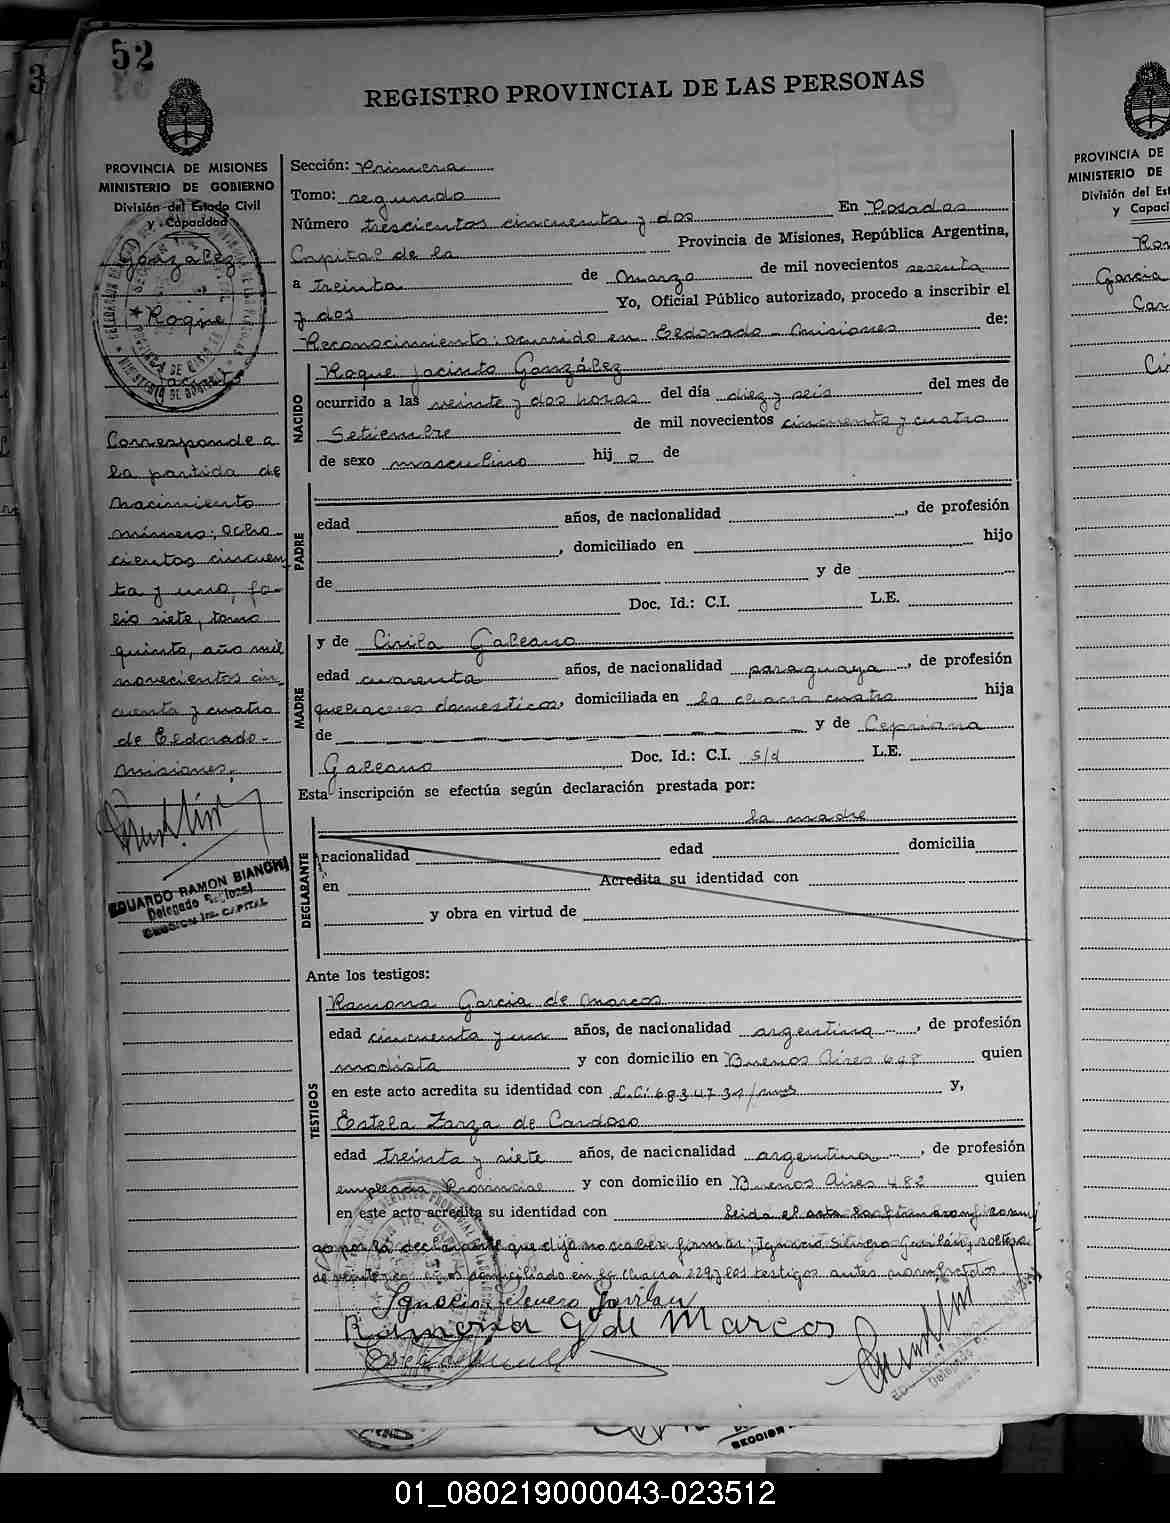 52
3
REGISTRO PROVINCIAL DE LAS PERSONAS
PROVINCIA DE MISIONES
MINISTERIO DE GOBIERNO
División del Estado Civil
y Capacidad
Gonzalez
Roque
Jacinto
Corresponde a
la partida de
nacimiento
número; ocho
cientos cincuen
ta y uno, fo-
lio siete, tomo
quinto, año mil
novecientos cin
cuenta y cuatro
de Eldorado-
Misiones.
EDUARDO RAMON BIANCHI
Delegado Regional
Sección: Primera
Tomo: segundo
Número trescientos cincuenta y dos En Posadas
Capital de la Provincia de Misiones, República Argentina,
a treinta de Marzo de mil novecientos sesenta
y dos Yo, Oficial Público autorizado, procedo a inscribir el
Reconocimiento: ocurrido en Eldorado - Misiones de:
NACIDO
Roque Jacinto González
ocurrido a las veinte y dos horas del día diez y seis del mes de
Setiembre de mil novecientos cincuenta y cuatro
de sexo masculino hij o de
PADRE
edad años, de nacionalidad , de profesión
, domiciliado en hijo
de y de
Doc. Id.: C.I. L.E.
MADRE
y de Cirila Galeano
edad cuarenta años, de nacionalidad paraguaya , de profesión
quehaceres domesticos, domiciliada en la chacra cuatro hija
de y de Cepriana
Galeano Doc. Id.: C.I. s/d L.E.
Esta inscripción se efectúa según declaración prestada por:
la madre
DECLARANTE
nacionalidad edad domicilia
en Acredita su identidad con
y obra en virtud de
Ante los testigos:
TESTIGOS
Ramona Garcia de Marcos
edad cincuenta y un años, de nacionalidad argentina , de profesión
modista y con domicilio en Buenos Aires 698 quien
en este acto acredita su identidad con y,
Estela Zarza de Cardoso
edad treinta y siete años, de nacionalidad argentina , de profesión
empleada Provincial y con domicilio en Buenos Aires 482 quien
en este acto acredita su identidad con Leida el acta la
por la declarante que dijo no saber firmar; Ignacio Silvero Gavilán, soltero
de domiciliado en la chacra 229 y los testigos antes nombrados
Ignacio Silvero Gavilan
Ramona G de Marcos
PROVINCIA DE
MINISTERIO DE
División del Est
y Capaci
Garcia
Car
01_080219000043-023512